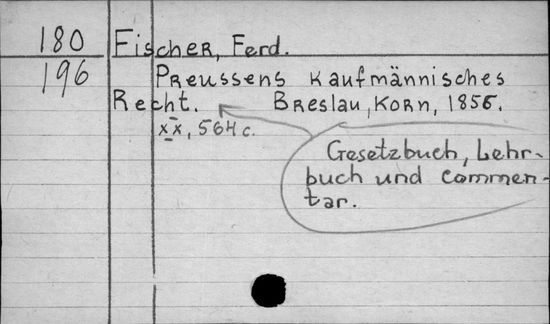 180 Fischer, Ferd.
196 Preussens Kaufmännisches
Recht. Breslau, Korn, 1856.
XX, 564 c.
Gesetzbuch, Lehr-
buch und Commen-
tar.